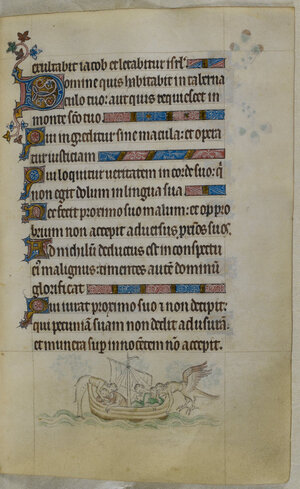 exultabit iacob et letabitur isrl̄.
Domine quis habitabit in taberna
culo tuo: aut quis requiescet in
monte sc̄o tuo
Qui ingreditur sine macula: et opera
tur iusticiam
Qui loquitur veritatem in corde suo: q̄
non egit dolum in lingua sua
Nec fecit proximo suo malum: et oppro
brium non accepit adversus prox̄os suos
Ad nichilū deductus est in conspectu
ei' malignus: timentes autē dominū
glorificat
Qui iurat proximo suo ⁊ non decipit:
qui pecuniā suam non dedit ad usurā.
et munera sup innocētem nō accepit.